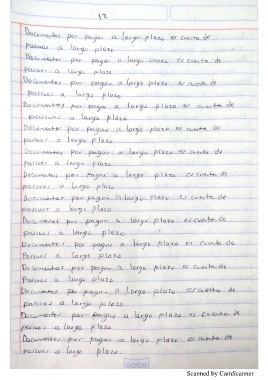 12
Documentos por pagar a largo plazo es cuenta de
pasivos a largo plazo
Documentos por pagar a largo plazo es cuenta de
pasivos a largo plazo
Documentos por pagar a largo plazo es cuenta de
pasivos a largo plazo
Documentos por pagar a largo plazo es cuenta de
pasivos a largo plazo
Documentos por pagar a largo plazo es cuenta de
pasivos a largo plazo
Documentos por pagar a largo plazo es cuenta de
pasivos a largo plazo
Documentos por pagar a largo plazo es cuenta de
pasivos a largo plazo
Documentos por pagar a largo plazo es cuenta de
pasivos a largo plazo
Documentos por pagar a largo plazo es cuenta de
pasivos a largo plazo
Documentos por pagar a largo plazo es cuenta de
Pasivos a largo plazo
Documentos por pagar a largo plazo es cuenta de
Pasivos a largo plazo
Documentos por pagar a largo plazo es cuenta de
pasivos a largo plazo
Documentos por pagar a largo plazo es cuenta de
pasivos a largo plazo
Documentos por pagar a largo plazo es cuenta de
pasivos a largo plazo.
Scanned by CamScanner